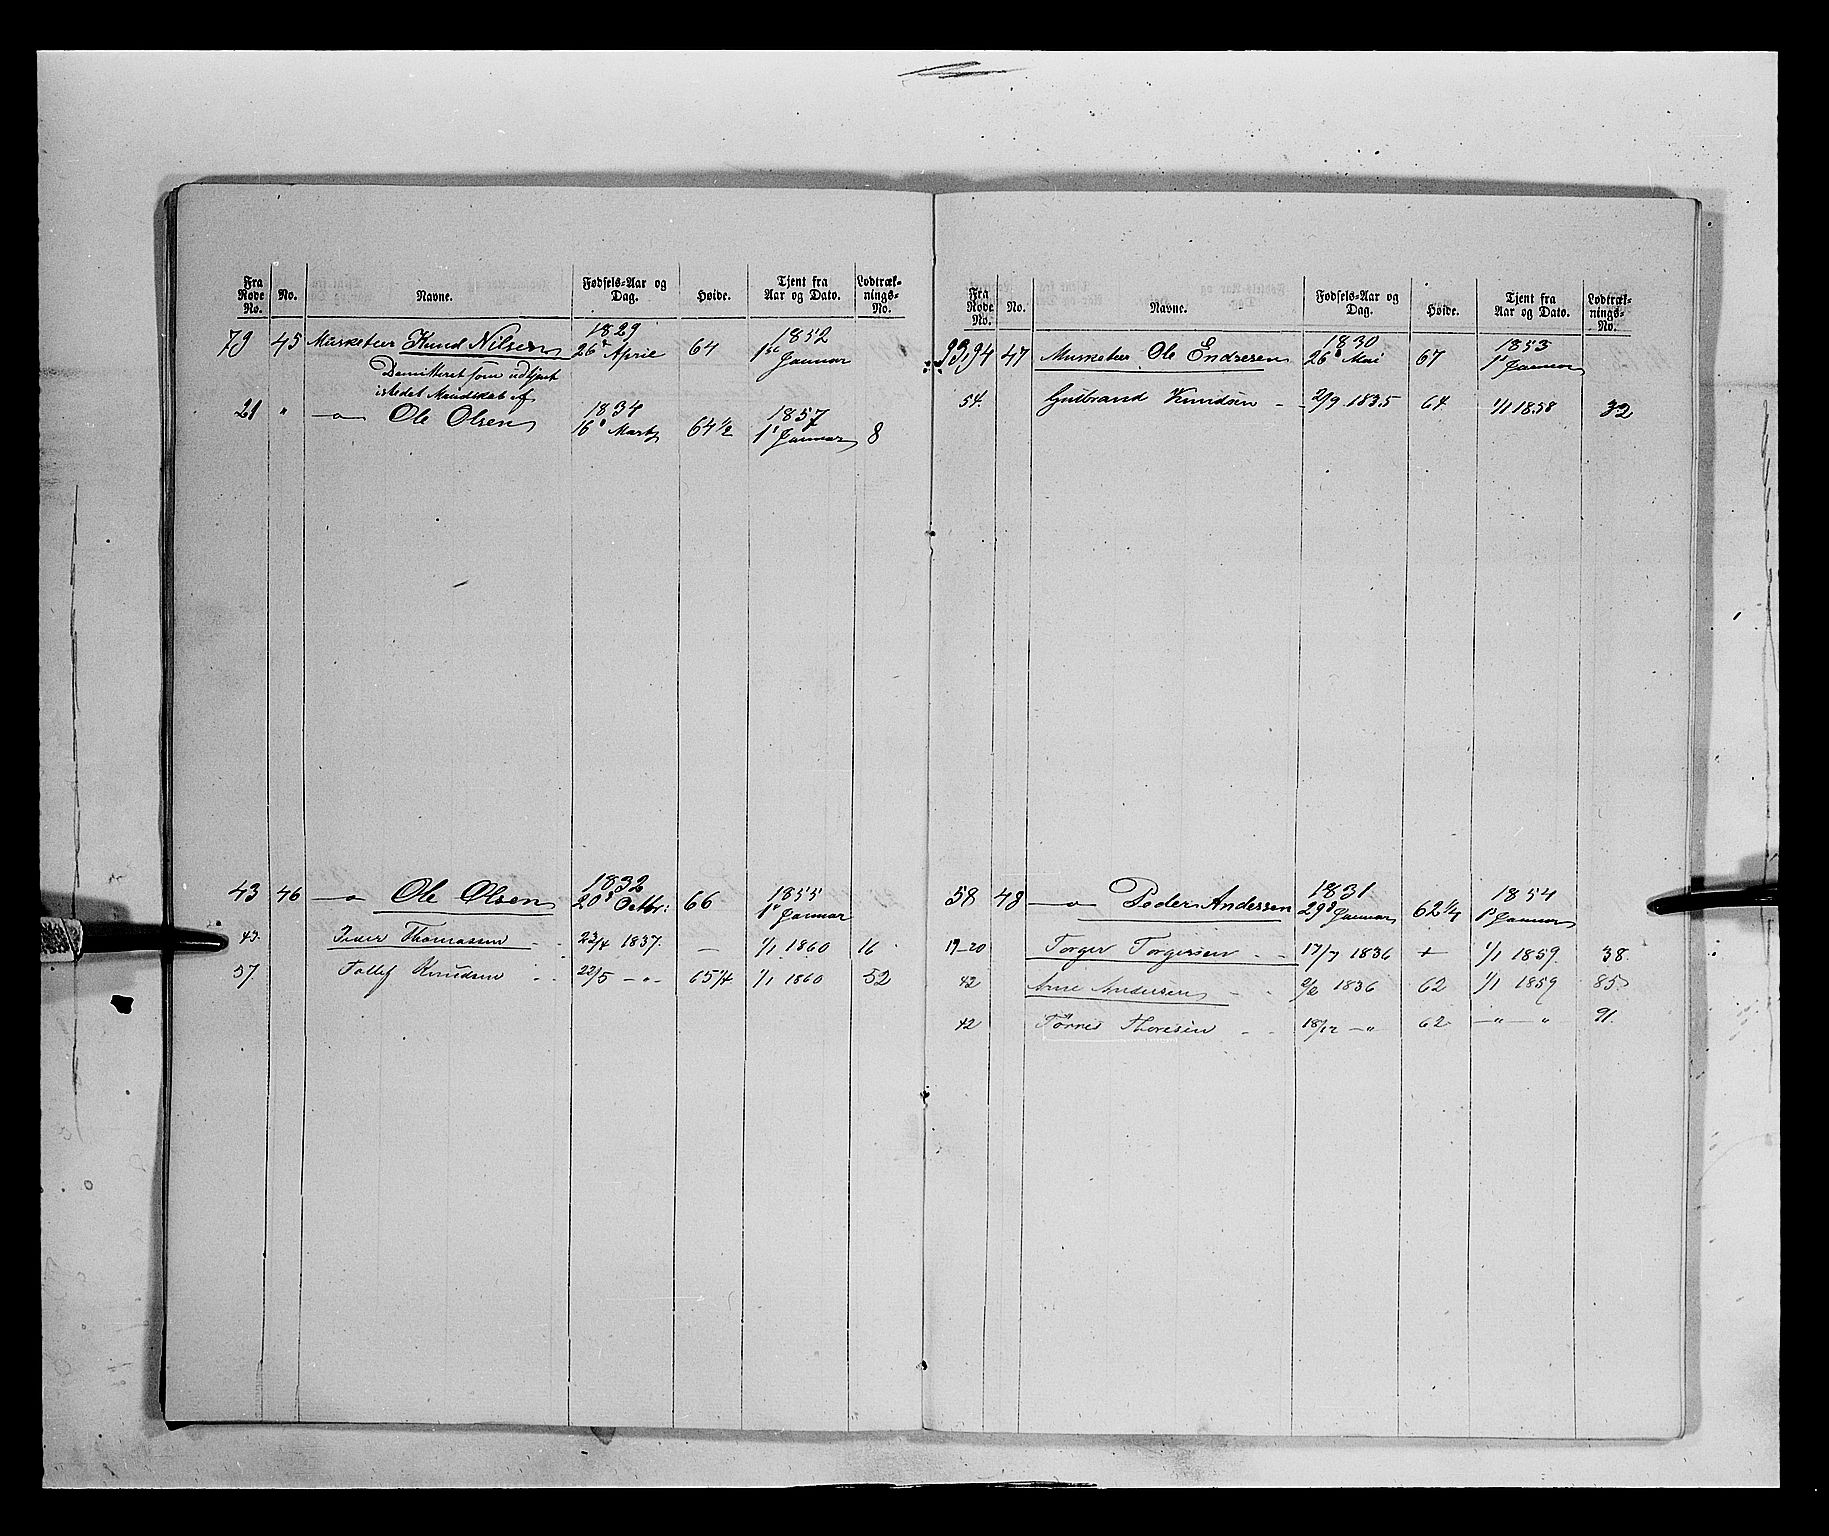 Fra Rode No. No. Navne. Fødsels-Aar og Dag. Høide. Tjent fra Aar og Dato. Lodtræk-nings-No.
79 45 Musketeer Knud Nilsen 1829 26de April 64 1852 1ste Januar
Demitteret som udtjent
istedet Mandskab af
21 " —"— Ole Olsen 1834 16de Marts 64½ 1857 1ste Januar 8
43 46 —"— Ole Olsen 1832 20de Octbr: 66 1855 1ste Januar
43. Peder Thomassen 23/4 1837. — 1/1 1860 16
57 Tollef Knudsen 22/5 —"— 65¼ 1/1 1860 52
Fra Rode No. No. Navne. Fødsels-Aar og Dag. Høide. Tjent fra Aar og Dato. Lodtræk-nings-No.
93,94 47 Musketeer Ole Endresen 1830 26de Mai 67 1853 1ste Januar
54. Gulbrand Knudsen 2/9 1835 64 1/1 1858 32
58 48 —"— Peder Andersen 1831 29de Januar 62¼ 1854 1ste Januar
19-20 Torger Torgersen 17/7 1836 + 1/1 1859. 38.
42 Andersen 1836 62 1/1 1859 85
42 Thoresen 18/12 —"— 62 —"— —"— 91.